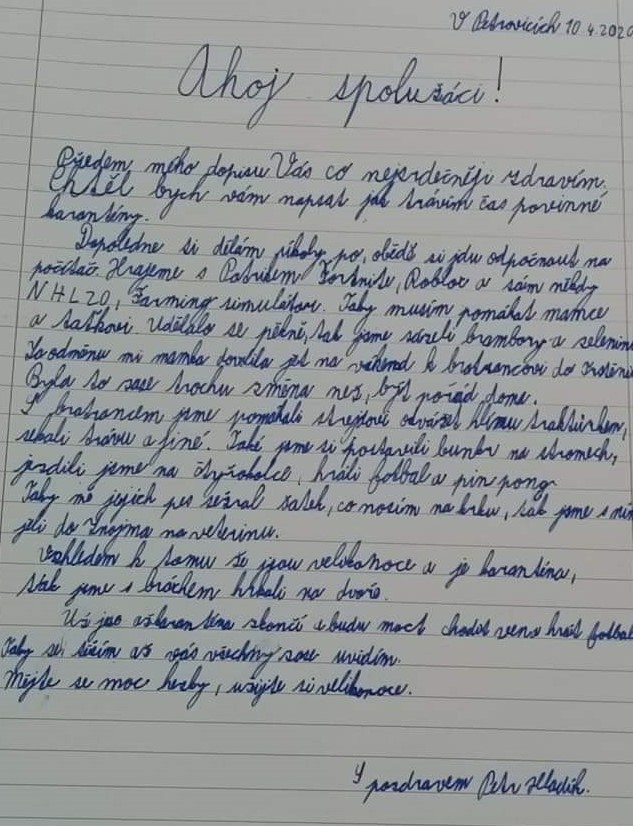 V Petrovicích 10.4.2020
Ahoj spolužáci!
Předem mého dopisu Vás co nejsrdečněji zdravím.
Chtěl bych vám napsat jak trávím čas povinné
karantény.
Dopoledne si dělám úkoly po, obědě si jdu odpočnout na
počítač. Hrajeme s Patrikem Fortnite, Roblox a sám někdy
NHL20, Farming simulátor. Taky musím pomáhat mamce
a taťkovi. Udělalo se pěkně, tak jsme sázeli brambory a zeleninu
Za odměnu mi mamka dovolila jet na víkend k bratrancovi do
Byla to zase trochu změna než, být pořád doma.
S bratrancem jsme pomáhali strejdovi odvážet hlínu traktůrkem,
sekali trávu a jiné. Také jsme si postavili bunkr na stromech,
jezdili jsme na čtyřkolce, hráli fotbal a pin pong.
Taky mě jejich pes sežral šátek, co nosím na krku, tak jsme s ním
jeli do Znojma na veterinu.
Vzhledem k tomu že jsou velikonoce a je karanténa,
tak jsme s bráchem hrkali na dvoře.
Už jao až karanténa skončí a budu moct chodit venu hrát fotbal
Taky se těším až vás všechny zase uvidím.
Mějte se moc hezky, užijte si velikonoce.
S pozdravem Petr Hladík.